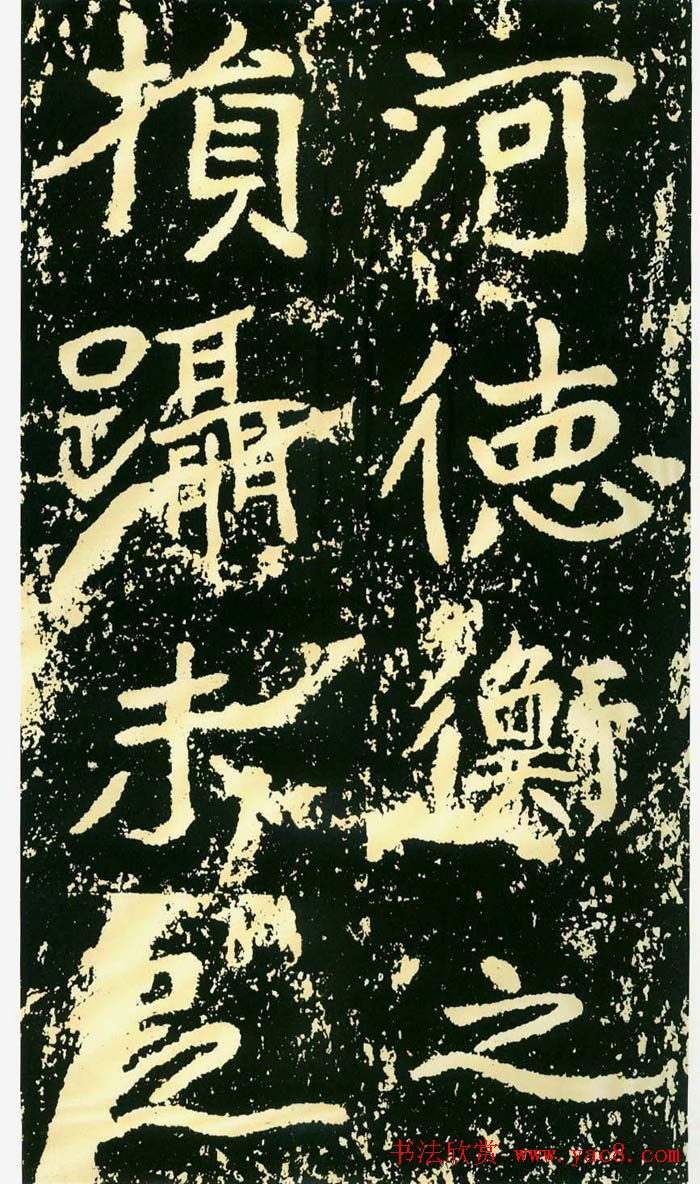 河德衡之
損躡未足
书法欣赏 www.yac8.com